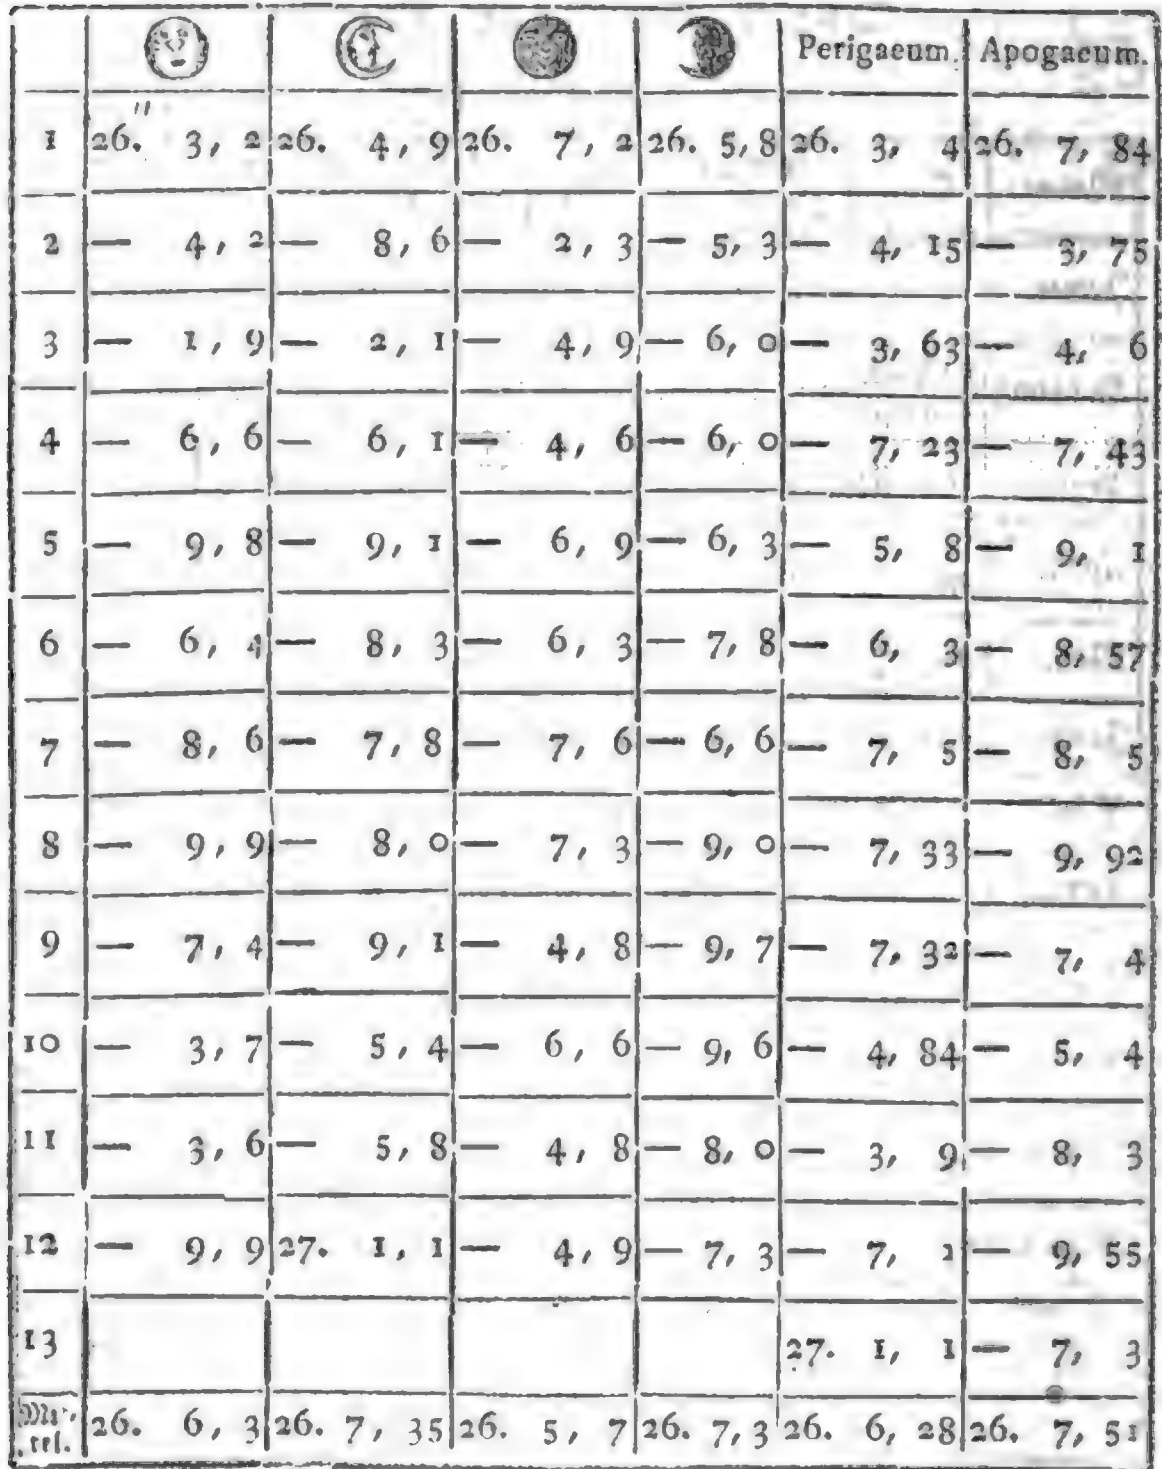 Perigaeum. Apogaeum.
1 26.'' 3, 2 26. 4, 9 26. 7, 2 26. 5, 8 26. 3, 4 26. 7, 84
2 — 4, 2 — 8, 6 — 2, 3 — 5, 3 — 4, 15 — 3, 75
3 — 1, 9 — 2, 1 — 4, 9 — 6, 0 — 3, 63 — 4, 6
4 — 6, 6 — 6, 1 — 4, 6 — 6, 0 — 7, 23 — 7, 43
5 — 9, 8 — 9, 1 — 6, 9 — 6, 3 — 5, 8 — 9, 1
6 — 6, 4 — 8, 3 — 6, 3 — 7, 8 — 6, 3 — 8, 57
7 — 8, 6 — 7, 8 — 7, 6 — 6, 6 — 7, 5 — 8, 5
8 — 9, 9 — 8, 0 — 7, 3 — 9, 0 — 7, 33 — 9, 92
9 — 7, 4 — 9, 1 — 4, 8 — 9, 7 — 7, 32 — 7, 4
10 — 3, 7 — 5, 4 — 6, 6 — 9, 6 — 4, 84 — 5, 4
11 — 3, 6 — 5, 8 — 4, 8 — 8, 0 — 3, 9 — 8, 3
12 — 9, 9 27. 1, 1 — 4, 9 — 7, 3 — 7, — 9, 55
13 27. 1, 1 — 7, 3
26. 6, 3 26. 7, 35 26. 5, 7 26. 7, 3 26. 6, 28 26. 7, 51